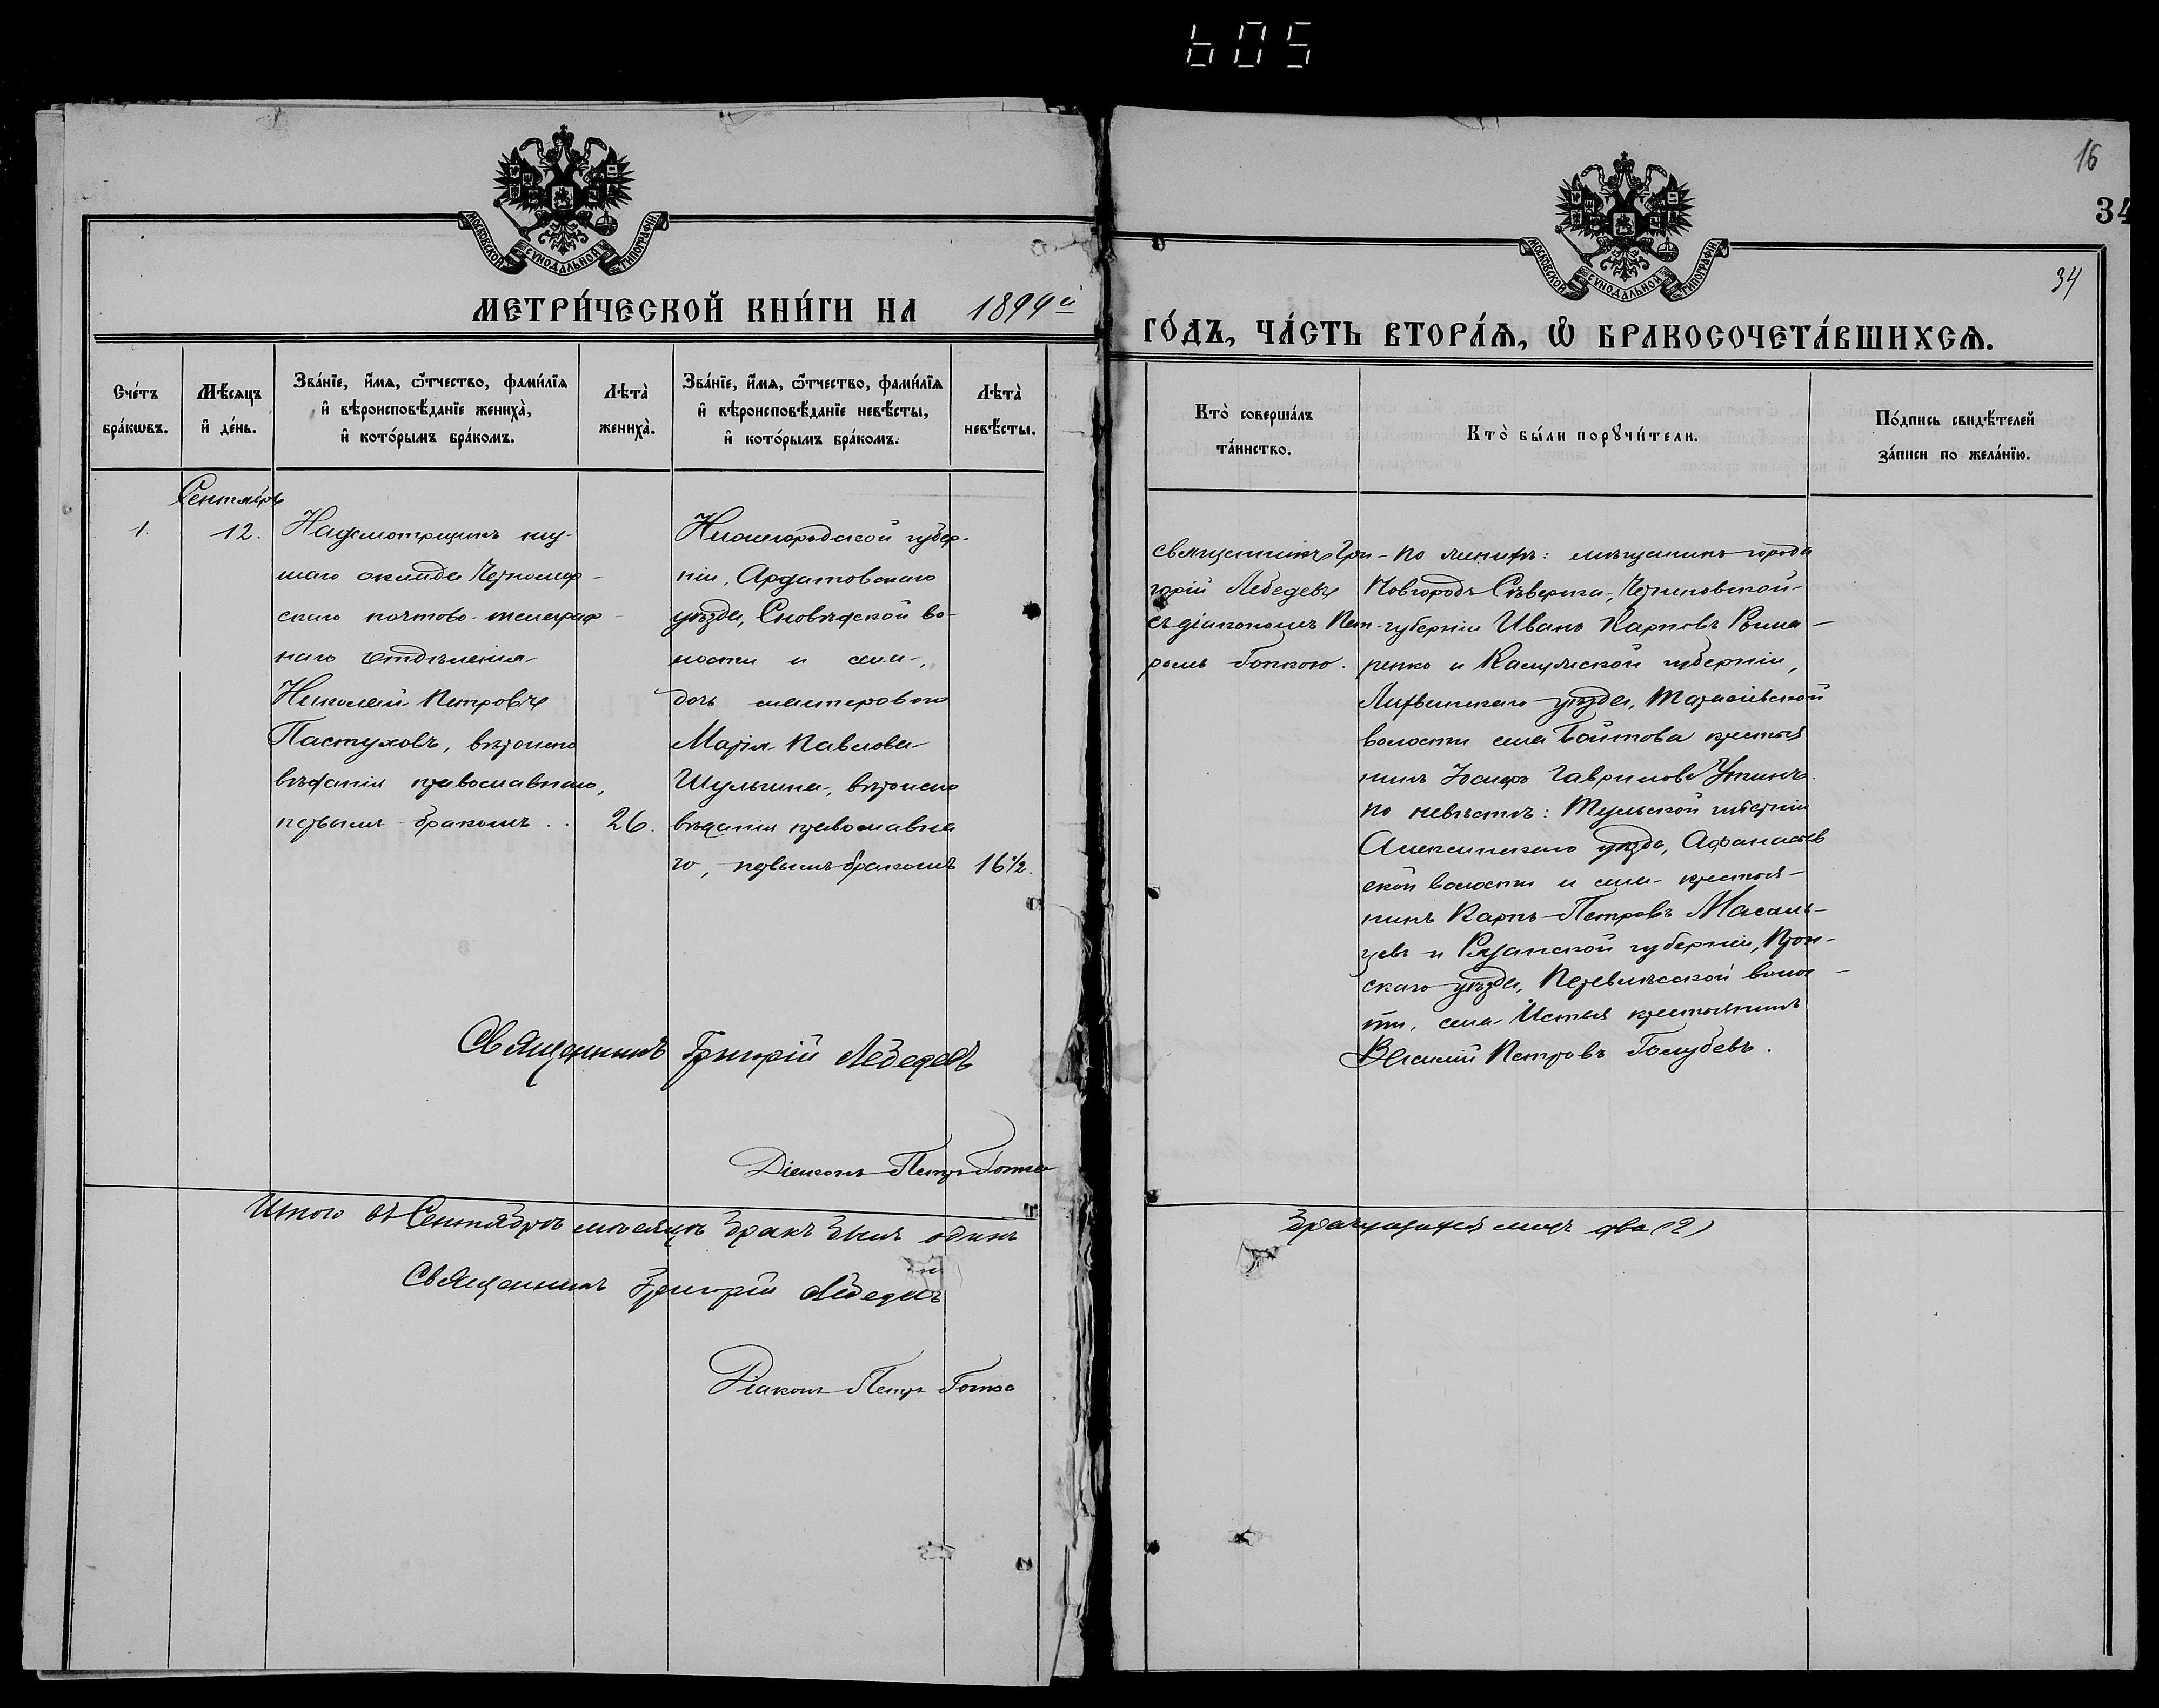 605
16
34
34
МОСКОВСКОЙ СѴНОДАЛЬНОЙ ТИПОГРАФІИ
МОСКОВСКОЙ СѴНОДАЛЬНОЙ ТИПОГРАФІИ
МЕТРИ́ЧЕСКОЙ КНИ́ГИ НА 1899й
ГО́ДЪ, ЧА́СТЬ ВТОРА́Ѧ, Ѡ҆ БРАКОСОЧЕТА́ВШИХСѦ.
Сче́тъ бра́кѡвъ.
Мѣ́сяцъ и҆ де́нь.
Зва́нїе, и҆́мѧ, ѻ҆́тчество, фами́лїѧ
и҆ вѣроисповѣ́данїе жениха̀,
и҆ кото́рымъ бра́комъ.
Лѣта̀ жениха̀.
Зва́нїе, и҆́мѧ, ѻ҆́тчество, фами́лїѧ
и҆ вѣроисповѣ́данїе невѣ́сты,
и҆ кото́рымъ бра́комъ.
Лѣта̀ невѣ́сты.
Кто̀ соверша́лъ
та́инство.
Кто̀ бы́ли порꙋчи́тели.
По́дпись свидѣ́телей
за́писи по жела́нїю.
Сентябрь
1.
12.
Надсмотрщикъ низ-
шаго оклада Черномор-
скаго почтово-телеграф-
наго отдѣленія
Николай Петровъ
Пастуховъ, вѣроиспо
вѣданія православнаго,
первымъ бракомъ.
26.
Нижегородской губер-
ніи, Ардатовскаго
уѣзда, Сновѣдской во-
лости и села,
дочь мастерового
Марія Павлова
Шульгина, вѣроиспо
вѣданія православна
го, первымъ бракомъ
16½.
Священникъ Гри-
горій Лебедевъ
съ діакономъ Пет-
ромъ Готкою.
по женихѣ: мѣщанинъ города
Новгородъ Сѣверска, Черниговской
губерніи Иванъ Карповъ Рома-
ренко и Калужской губерніи,
Лихвинскаго уѣзда,
волости села крестья
нинъ Іосифъ Гавриловъ
по невѣстѣ: Тульской губерніи
Алексинскаго уѣзда, Афанасьев
ской волости и села крестья-
нинъ Карпъ Петровъ Масаль-
цевъ и Рязанской губерніи, Прон-
скаго уѣзда, Перевлѣсской волос-
ти, села Истья крестьянинъ
Василій Петровъ Голубевъ.
Священникъ Григорій Лебедевъ
Діаконъ Петръ Готка
Итого въ Сентябрѣ мѣсяцѣ бракъ былъ одинъ
брачущихся лицъ два (2)
Священникъ Григорій Лебедевъ
Діаконъ Петръ Готка